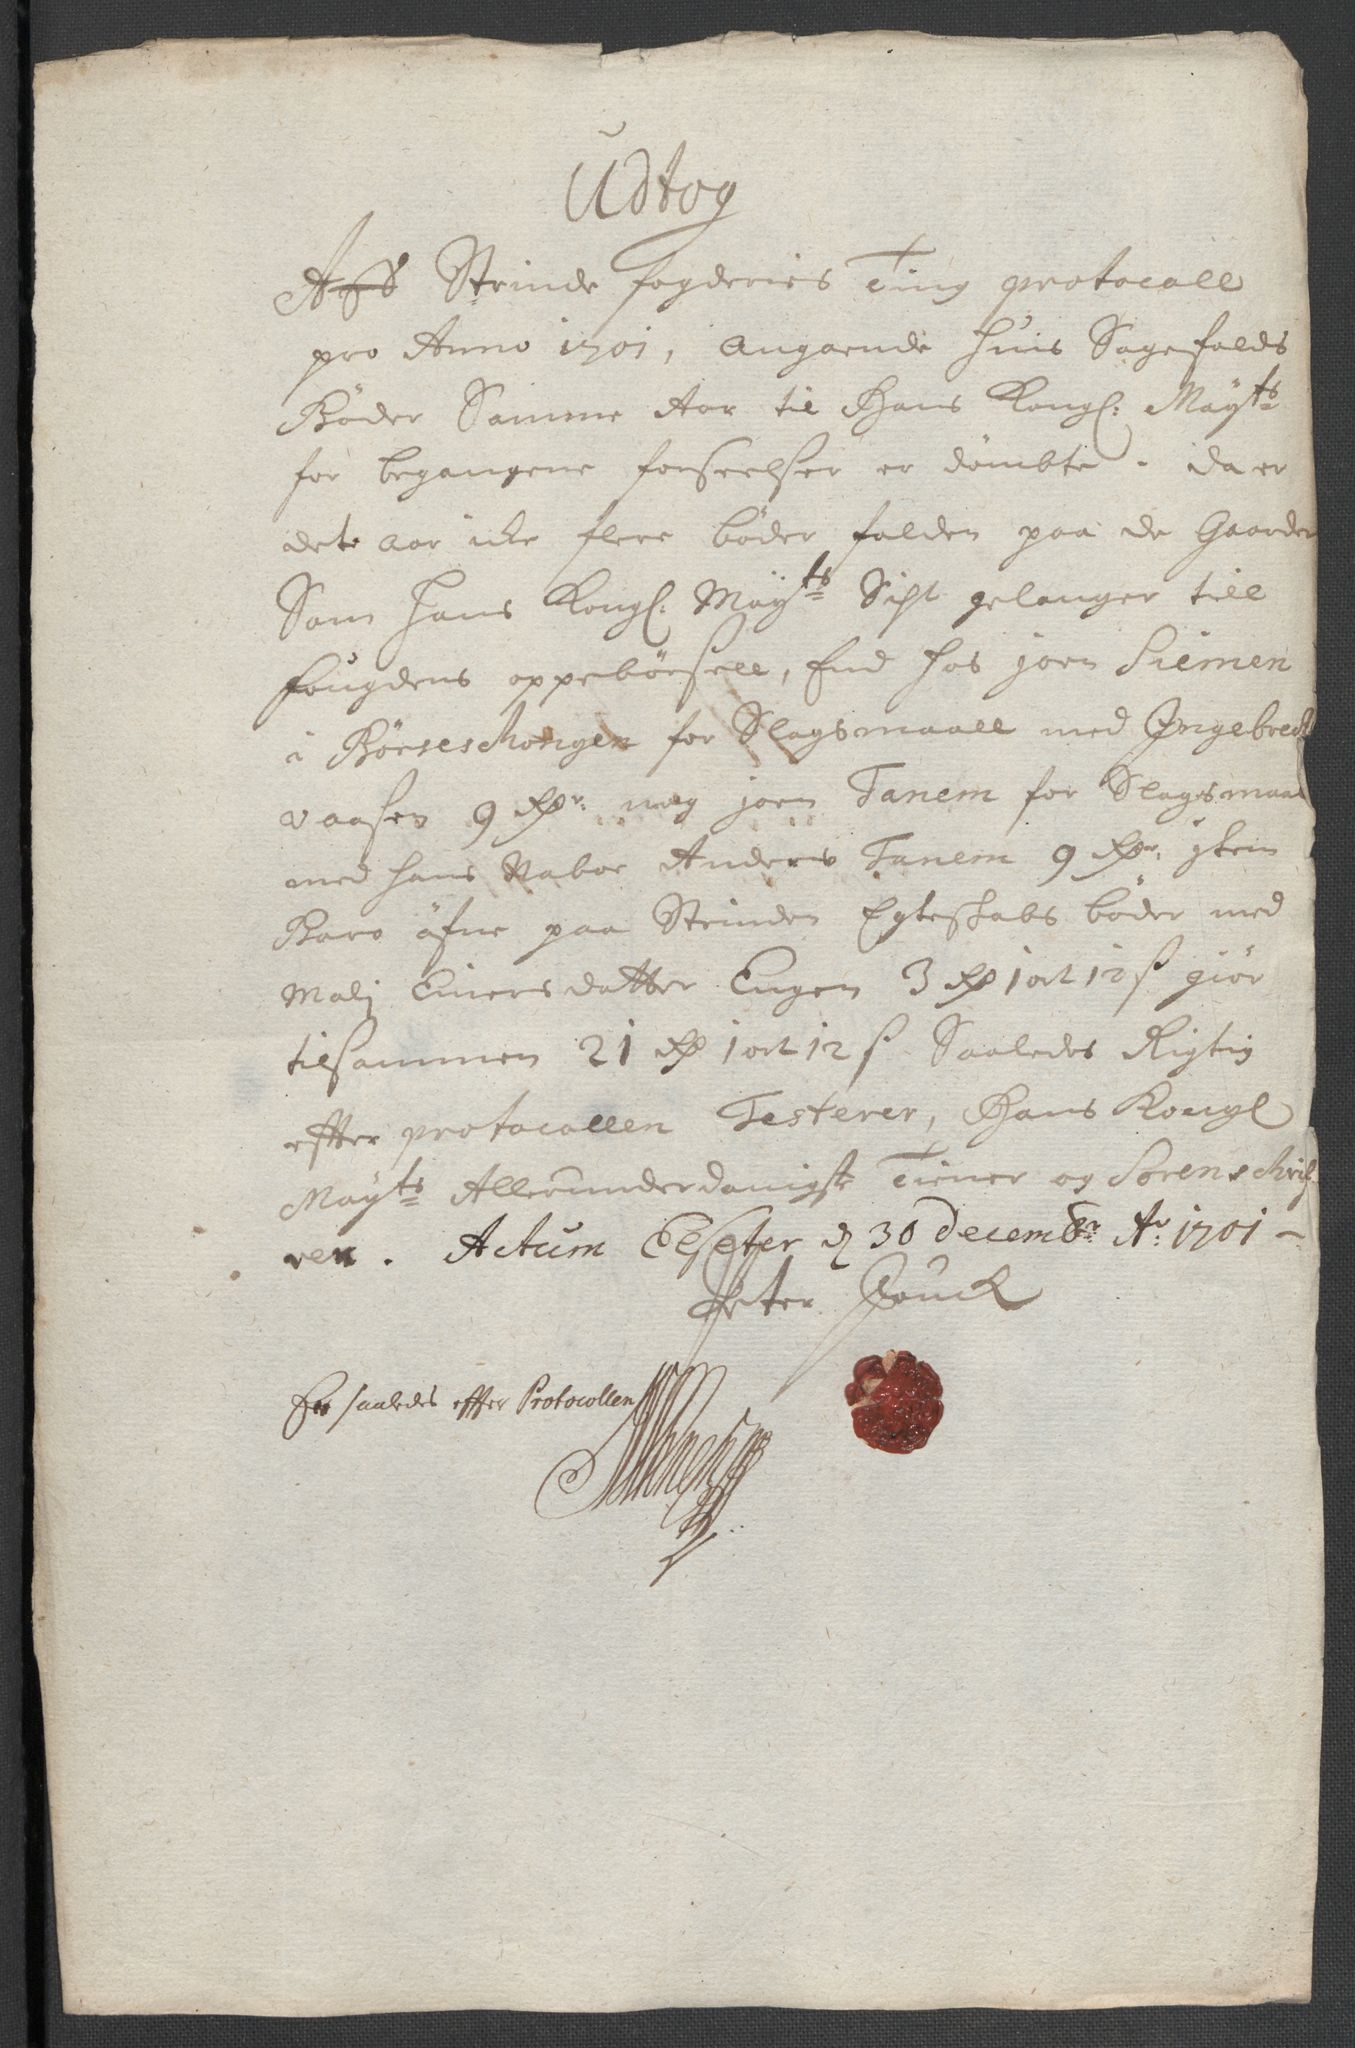 Udtog
Aff Strinde fogderies Ting protocoll
pro Anno 1701, angaaende huis Sagefalds
Bøder Samme Aar til Hans Kongl: Mayts
for begangene forseelser er dømbte. da er
dete aar icke flere bøder falden paa de Gaarder
Som hans Kongl: Mayts Sigt gelanger till
fougdens oppebørsell, End hos joen Siemen
i Børseschongen for Slagsmaall med Jngebrect
vaasen 9 Rdr. nog joen Tanem for Slagsmaal
med hans Naboe Anders Tanem 9 Rdr. jtem
Baro øfne paa Strinden Egteskabs bøder med
Malj Einersdatter Eugen 3 Rd 1 ort 12 s giør
tilsammen 21 Rd 1 ort 12 s Saaledes Rigtig
efter protocollen Testerer, Hans Kongl
Mayts Allerunderdanigste Tiener og Sorenschrif
ver. Actum Eeseter d 30 Decembr Ao 1701
Peter Souck
Er saaledes effter Protocollen